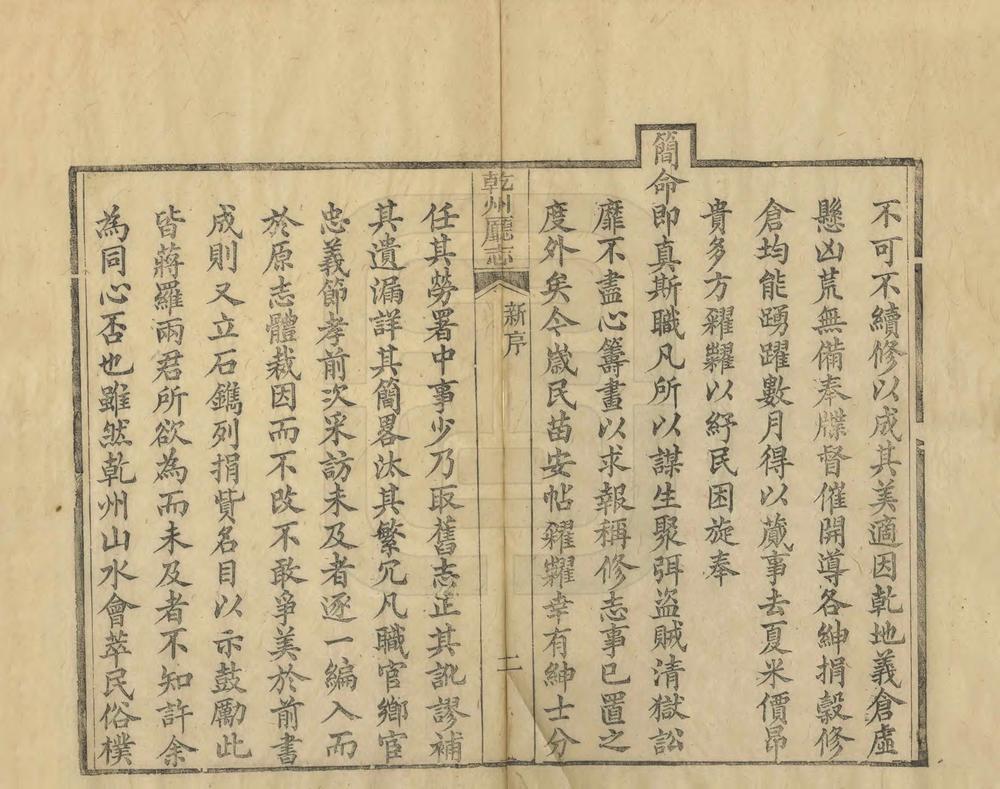 不可不續修以成其美適因乾地義倉虛
懸凶荒無備奉牒督催開導各紳捐穀修
倉均能踴躍數月得以蕆事去夏米價昂
貴多方糴糶以紓民困旋奉
簡命即真斯職凡所以謀生聚弭盜賊清獄訟
靡不盡心籌畫以求報稱修志事已置之
度外矣今歲民苗安帖糴糶幸有紳士分
乾州廳志
新序
二
任其勞署中事少乃取舊志正其訛謬補
其遺漏詳其簡畧汰其繁冗凡職官鄉宦
忠義節孝前次采訪未及者逐一編入而
於原志體裁因而不改不敢爭美於前書
成則又立石鐫列捐貲名目以示鼓勵此
皆蔣羅兩君所欲為而未及者不知許余
為同心否也雖然乾州山水會萃民俗樸